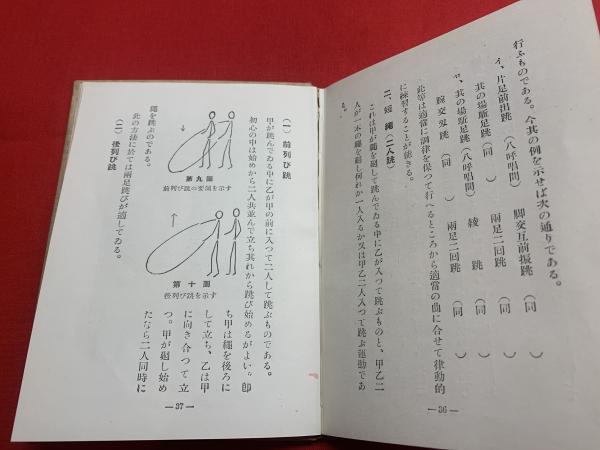 行ふものである。今其の例を示せば次の通りである。
イ、片足前出跳（八呼唱間）　脚交互前振跳（同　）
其の場駈足跳（同　）　兩足二回跳（同　）
ヤ、其の場駈足跳（八呼唱間）　綾　跳（同　）
腕交叉跳（同　）　兩足二回跳（同　）
此等は適當に調律を保つて行へるところから適當の曲に合せて律動的
に練習することが能きる。
二、短　繩（二人跳）
これは甲が繩を廻して跳んでゐる中に乙が入つて跳ぶものと、甲乙二
人が一本の繩を廻し何れか一人入るか又は甲乙二人入つて跳ぶ運動であ
る。
—36—
（一）前列び跳
甲が跳んでゐる中に乙が甲の前に入つて二人して跳ぶものである。
初心の中は始めから二人共並んで立ち其れから跳び始めるがよい。卽
ち甲は繩を後ろに
して立ち、乙は甲
に向き合つて立
つ。甲が廻し始め
たなら二人同時に
第九圖
前列び跳の要領を示す
第十圖
後列び跳を示す
繩を跳ぶのである。
此の方法に於ては兩足跳びが適してゐる。
（二）後列び跳
—37—